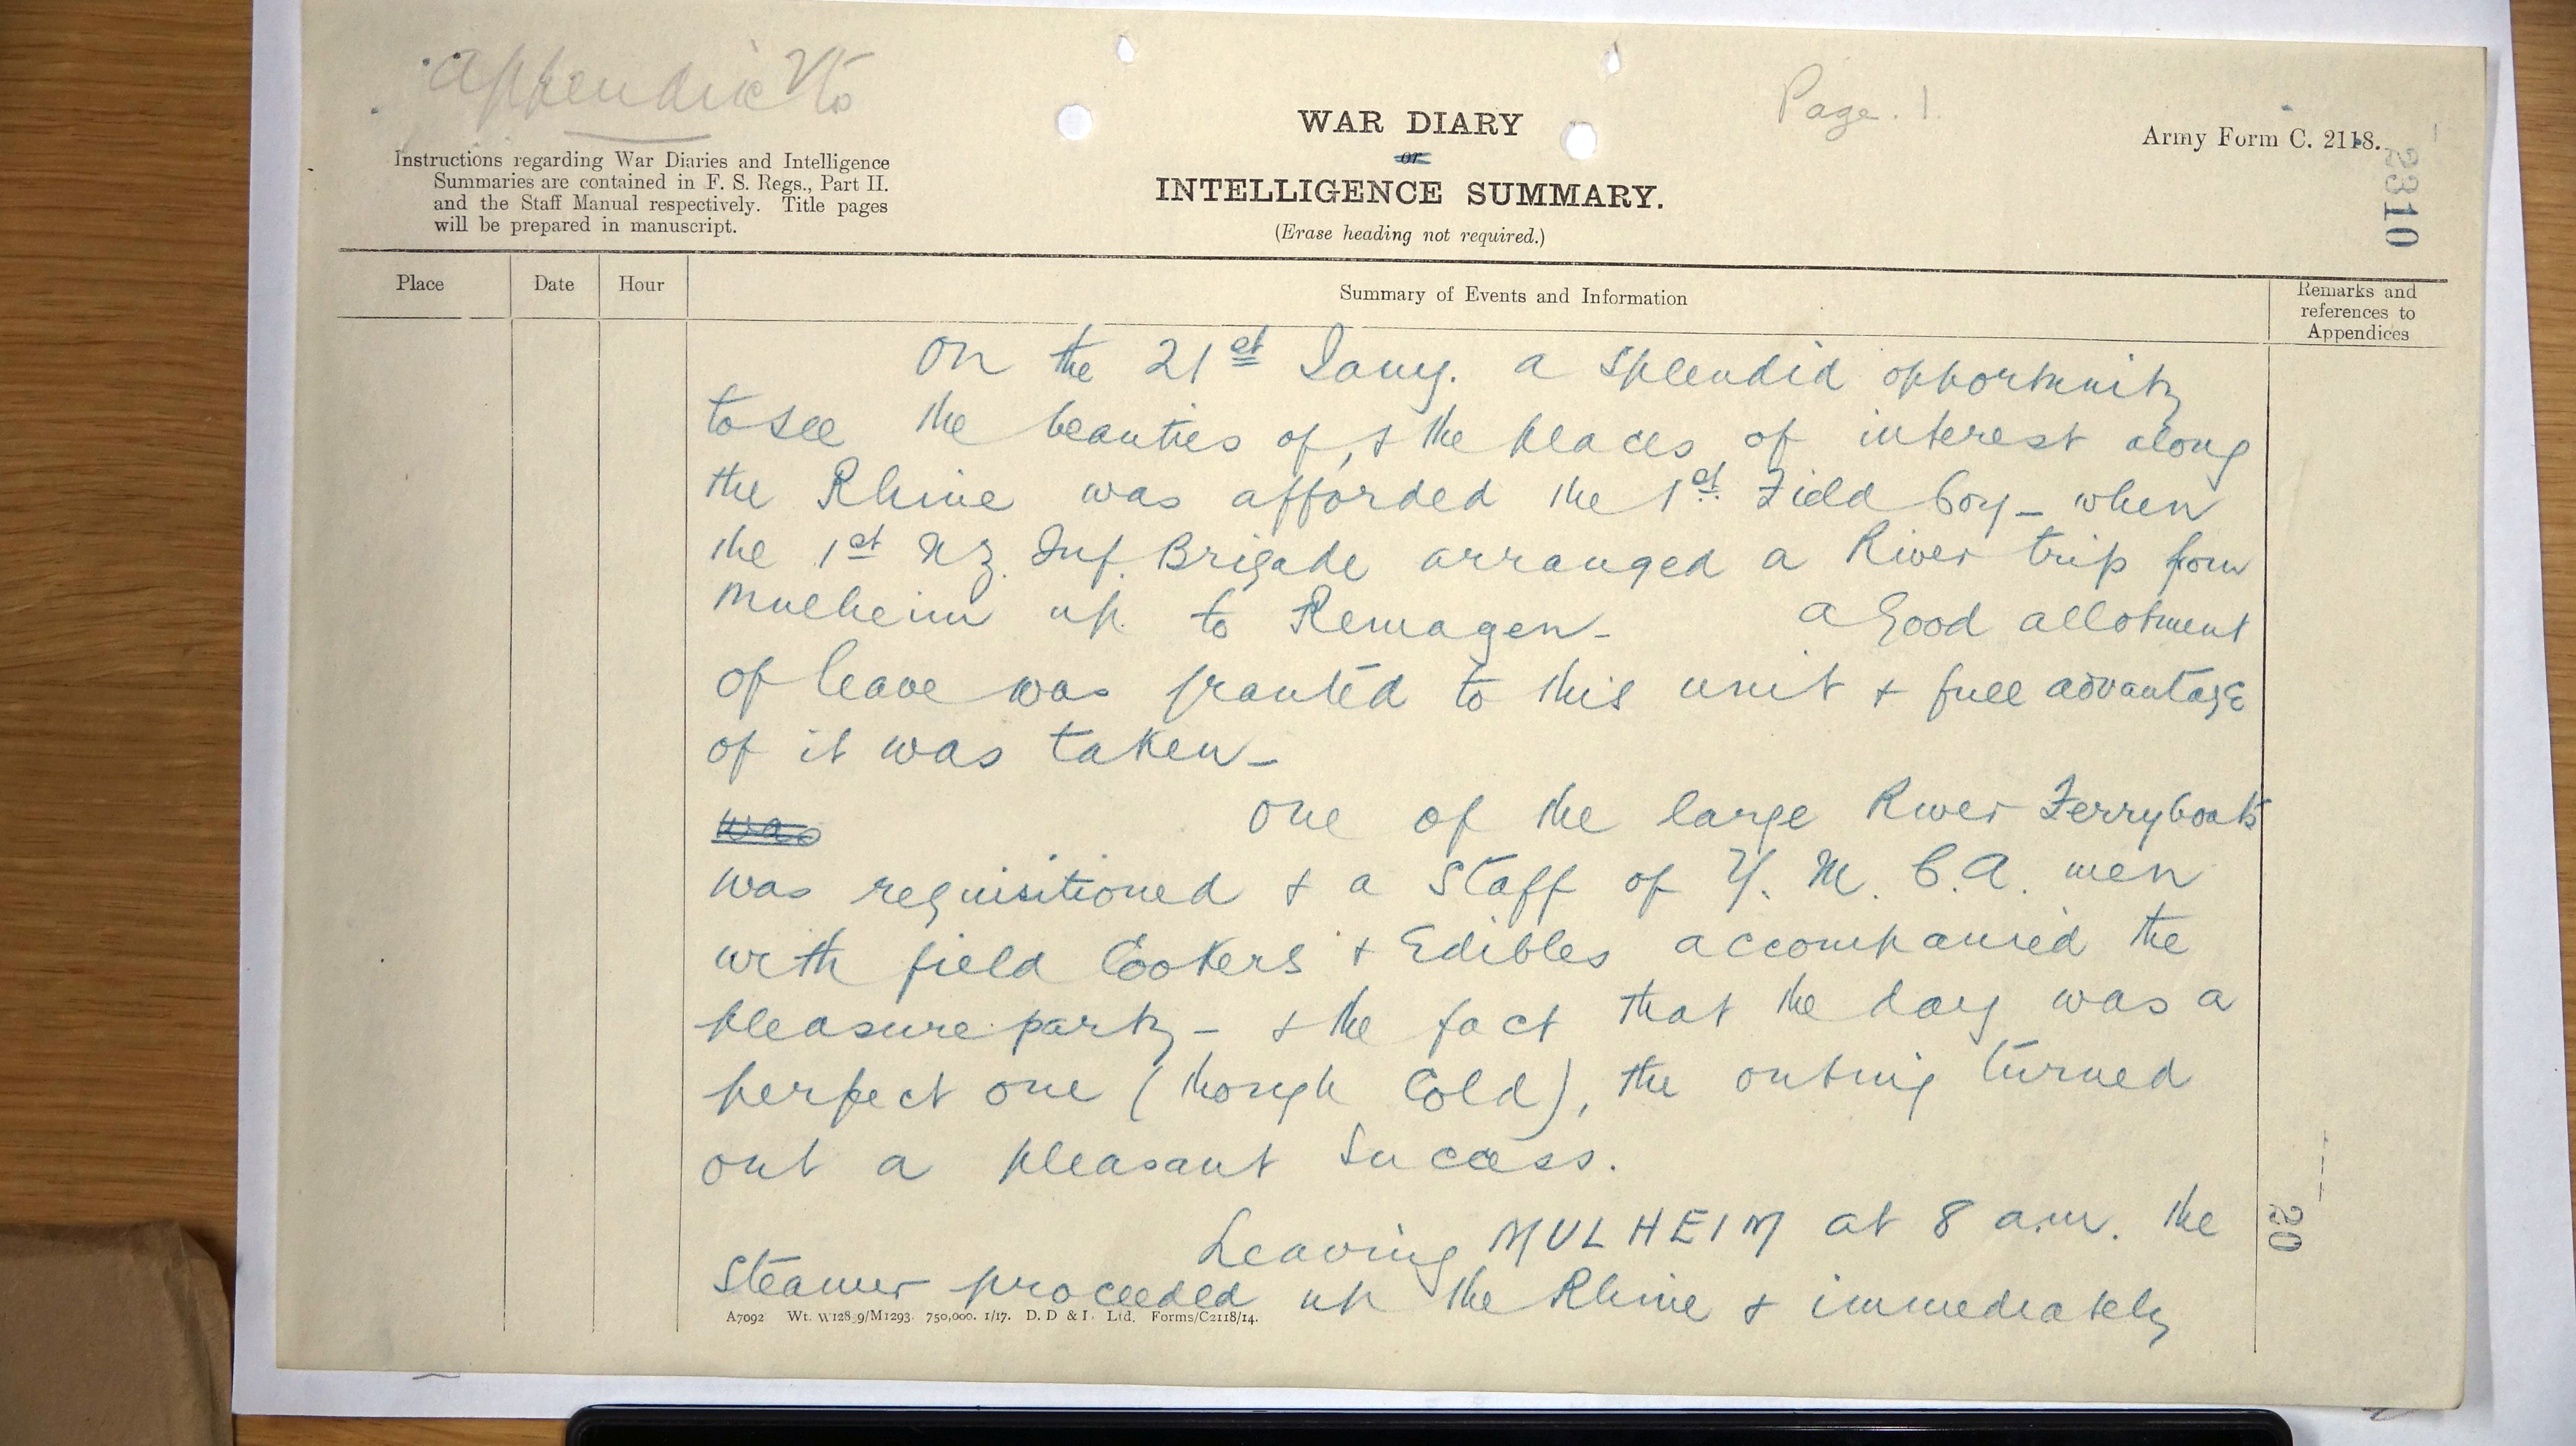 Appendix to
Page. 1.
WAR DIARY
or
INTELLIGENCE SUMMARY.
(Erase heading not required.)
Army Form C. 2118.
2310
Instructions regarding War Diaries and Intelligence
Summaries are contained in F. S. Regs., Part II.
and the Staff Manual respectively. Title pages
will be prepared in manuscript.
Place
Date
Hour
Summary of Events and Information
Remarks and
references to
Appendices
On the 21st Jany. a splendid opportunity
to see the beauties of, & the places of interest along
the Rhine was afforded the 1st Field Coy – when
the 1st N.Z. Inf. Brigade arranged a River trip from
Mulheim up to Remagen – a good allotment
of leave was granted to this unit & full advantage
of it was taken –
was One of the large River Ferryboats
was requisitioned & a staff of Y. M. C. A. men
with field Cookers & Edibles accompanied the
pleasure party – & the fact that the day was a
perfect one (though Cold), the outing turned
out a pleasant success.
Leaving MULHEIM at 8 a.m. the
Steamer proceeded up the Rhine & immediately
A7092 Wt. W1289/M1293 750,000. 1/17. D. D & L. Ltd. Forms/C2118/14.
20